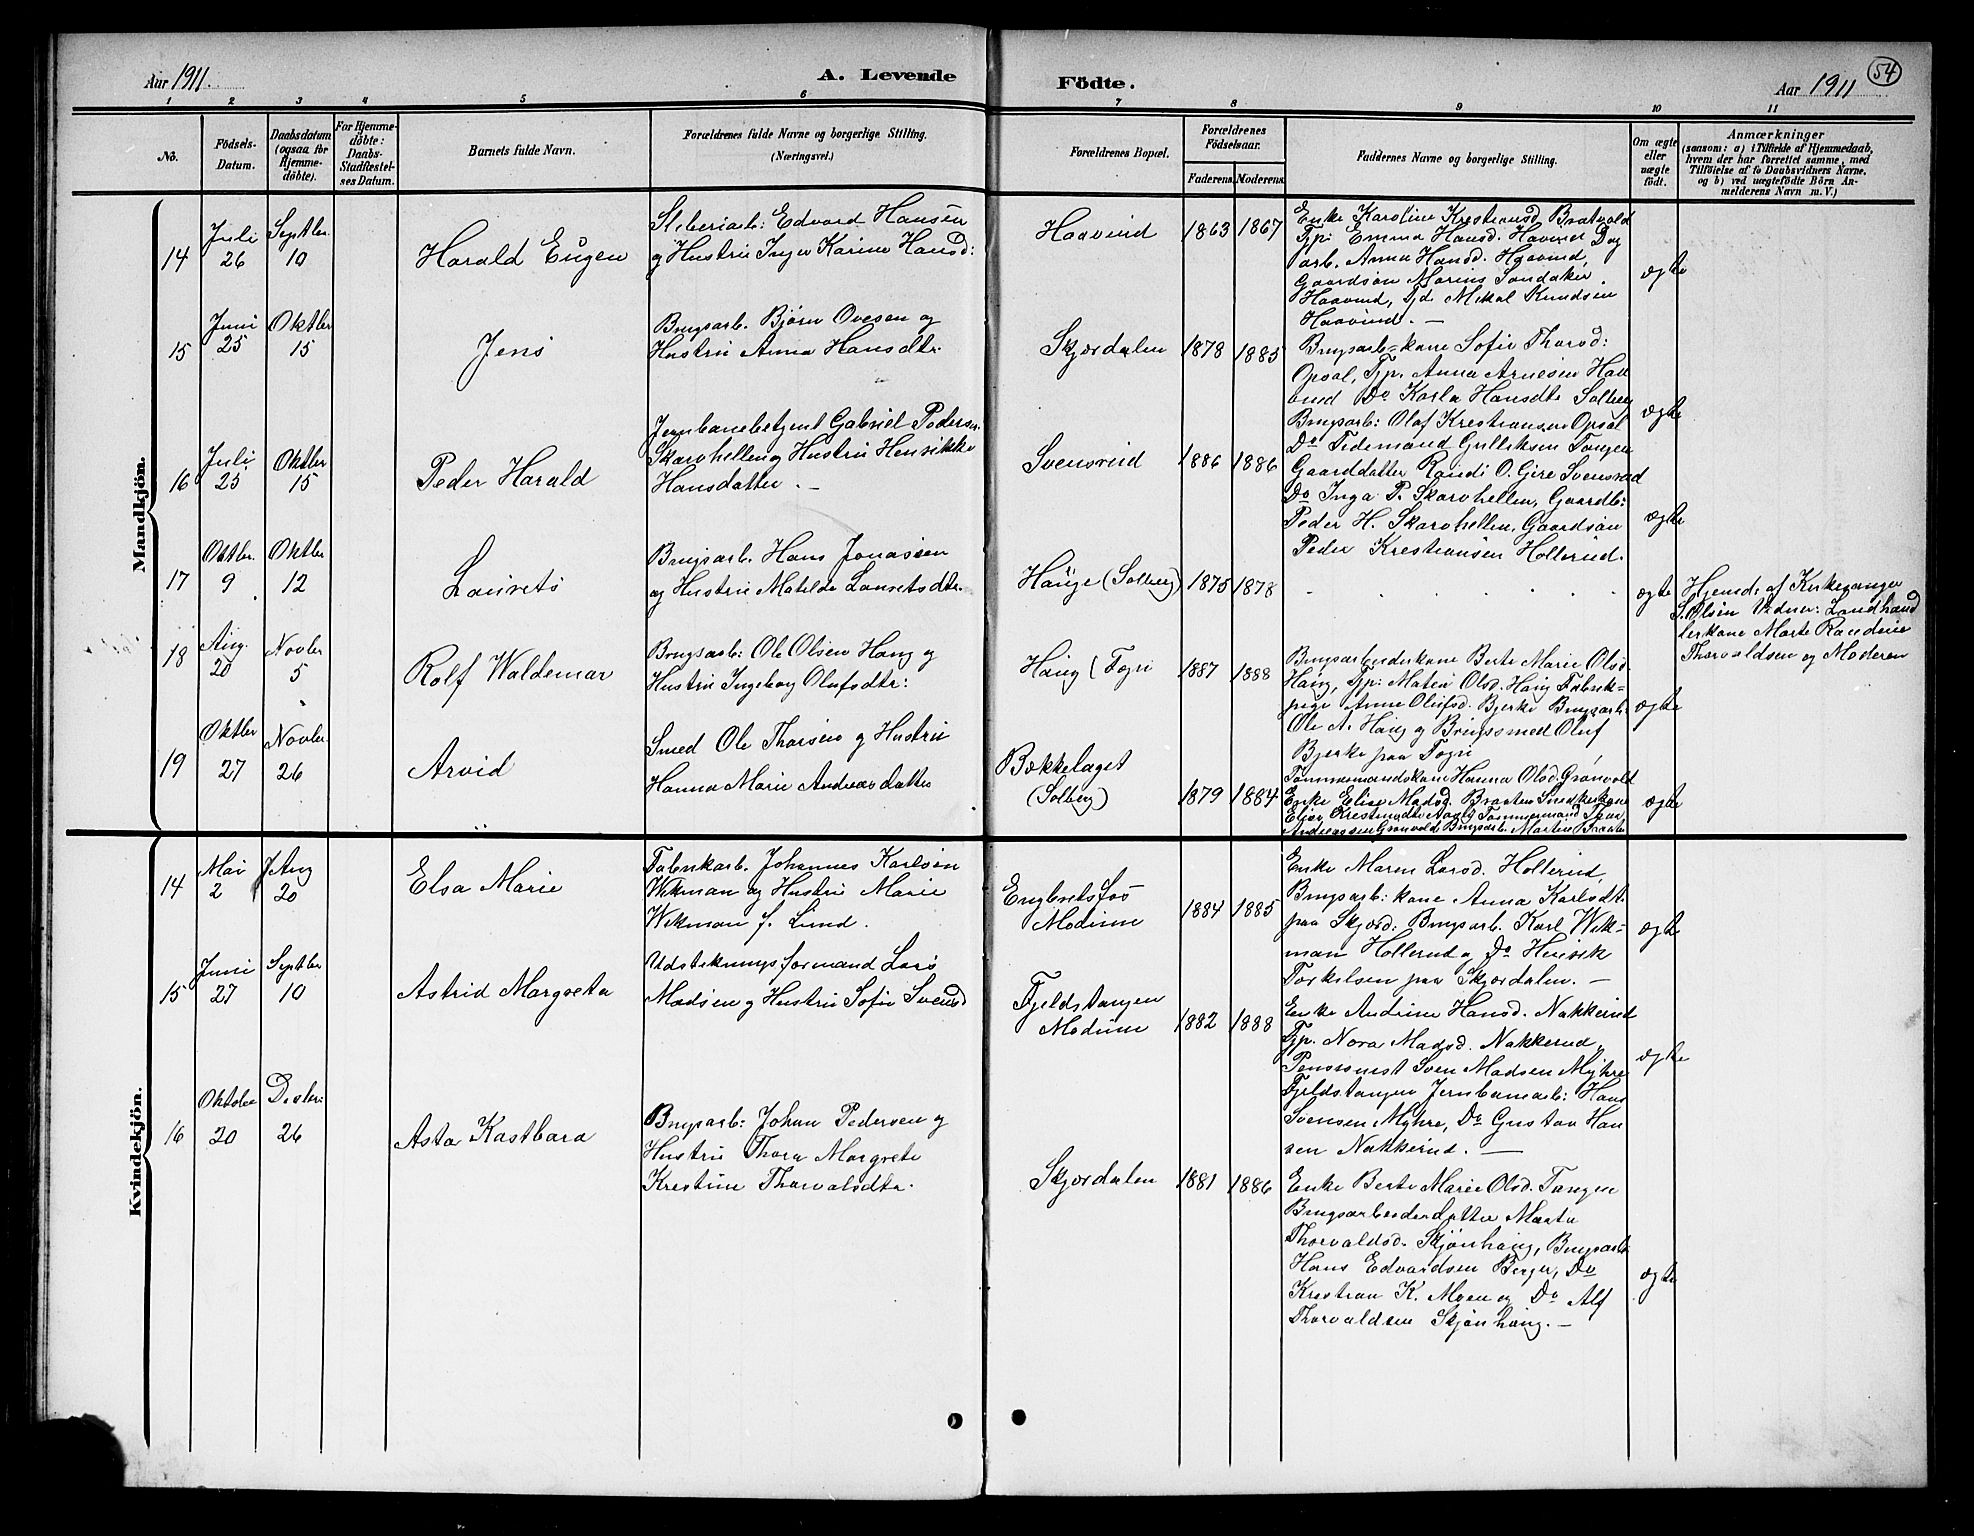 Aar 1911.
A. Levende
Födte.
Aar 1911
54
1 2 3 4 5 6 7 8 9 10 11
No.
Födsels-
Datum.
Daabsdatum
(ogsaa for
Hjemme-
döbte).
For Hjemme-
döbte:
Daabs-
Stadfæstel-
ses Datum.
Barnets fulde Navn.
Forældrenes fulde Navne og borgerlige Stilling.
(Næringsvei.)
Forældrenes Bopæl.
Forældrenes
Födselsaar.
Faderens.
Moderens.
Faddernes Navne og borgerlige Stilling.
Om ægte
eller
uægte
födt.
Anmærkninger
(saasom: a) i Tilfælde af Hjemmedaab,
hvem der har forrettet samme, med
Tilföielse af to Daabsvidners Navne,
og b) ved uægtefödte Börn An-
melderens Navn m. V.)
Mandkjön.
14
Juli
26
Septbr.
10
Harald Eugen
Sliberiarb: Edvard Hansen
og Hustru Inger Karine Hansd:
Haavind
1863
1867
Enke Karoline Krestiansd. Bratvold
Tjpi Emma Hansd. Haavind Dag
arb. Anna Hansd. Haavind,
Gaardsøn Marius Sandaker
Haavind, Tjd. Mikal Knudsen
Haavind. —
ægte
15
Juni
25
Oktbr
15
Jens
Brugsarb. Bjørn Ovesen og
Hustru Anna Hansdtr
Skjærdalen
1878
1885
Brugsarb-kone Sofie Thorsd:
Opsal, Tjp. Anna Arnesen Haa
vind Do Karla Hansdtr Solberg
Brugsarb: Olaf Krestiansen Opsal
Do Tidemand Gulliksen Tangen
ægte
16
Juli
25
Oktbr
15
Peder Harald
Jernbanebetjent Gabriel Peders.
Skarvhellen og Hustru Henrikke
Hansdatter. —
Svensrud
1886
1886
Gaarddatter Randi O. Gjire Svensrud
Do Inga P. Skarvhellen, Gaardb:
Peder H. Skarvhellen, Gaardsøn
Peder Krestiansen Hollerud.
ægte
17
Oktbr.
9
Oktbr
12
Laurets
Brugsarb. Hans Jonassen
og Hustru Matilde Lauretsdtr.
Hauge (Solberg)
1875
1878
ægte
Hjemd: af Kirkesanger
S. Olsen Vidner: Landhand
lerkone Marte Randine
Thorvaldsen og Moderen
18
Aug.
20
Novbr
5
Rolf Waldemar
Brugsarb: Ole Olsen Haug og
Hustru Ingeborg Olufsdtr:
Haug (Togri
1887
1888
Brugsarbeiderkone Berte Marie Olsd.
Haug, Tjp: Matea Olsd. Haug Fabrik-
pige Anne Olufsd. Bjerke Brugsarb.
Ole A. Haug og Brugssmed Oluf
Bjerke paa Togri
ægte
19
Oktbr
27
Novbr.
26
Arvid
Smed Ole Thorsen og Hustru
Hanna Marie Andreasdatter
Bækkelaget
(Solberg)
1879
1884
Tømmermandskone Hanna Olsd. Grønvold
Enke Elise Madsd. Braaten Snedkerkone
Andreassen Grønvold, Brugsarb. Martin Braate
ægte
Kvindekjön.
14
Mai
2
Aug
20
Elsa Marie
Fabrikarb. Johannes Karlsen
Wikman og Hustru Marie
Wikman f. Lund.
Engbretsfos
Modum
1884
1885
Enke Maren Larsd. Hollerud,
Brugsarb: kone Anna Karlsdt.
paa Skjærd: Brugsarb. Karl Wik-
man Hollerud og Do Henrik
Torkelsen paa Skjærdalen. —
ægte
15
Juni
27
Septbr
10
Astrid Margreta
Udstikningsformand Lars
Madsen og Hustru Sofie Svensd
Fjeldstangen
Modum
1882
1888
Enke Andrine Hansd. Nakkerud
Tjp. Nora Madsd. Nakkerud,
Pensionist Sven Madsen Myhre
Fjeldstangen Jernbanearb: Hans
Svensen Myhre, Do Gustav Han
sen Nakkerud. —
ægte
16
Oktober
20
Desbr:
26
Asta Kastbara
Brugsarb: Johan Pedersen og
Hustru Thora Margrete
Krestine Thorvalsdtr.
Skjærdalen
1881
1886
Enke Berte Marie Olsd. Tangen
Brugsarbeiderdatter Marta
Thorvaldsd. Skjønhaug, Brugsarb.
Hans Edvardsen Berger, Do
Krestian K. Moen og Do Alf
Thorvaldsen Skjønhaug. —
ægte